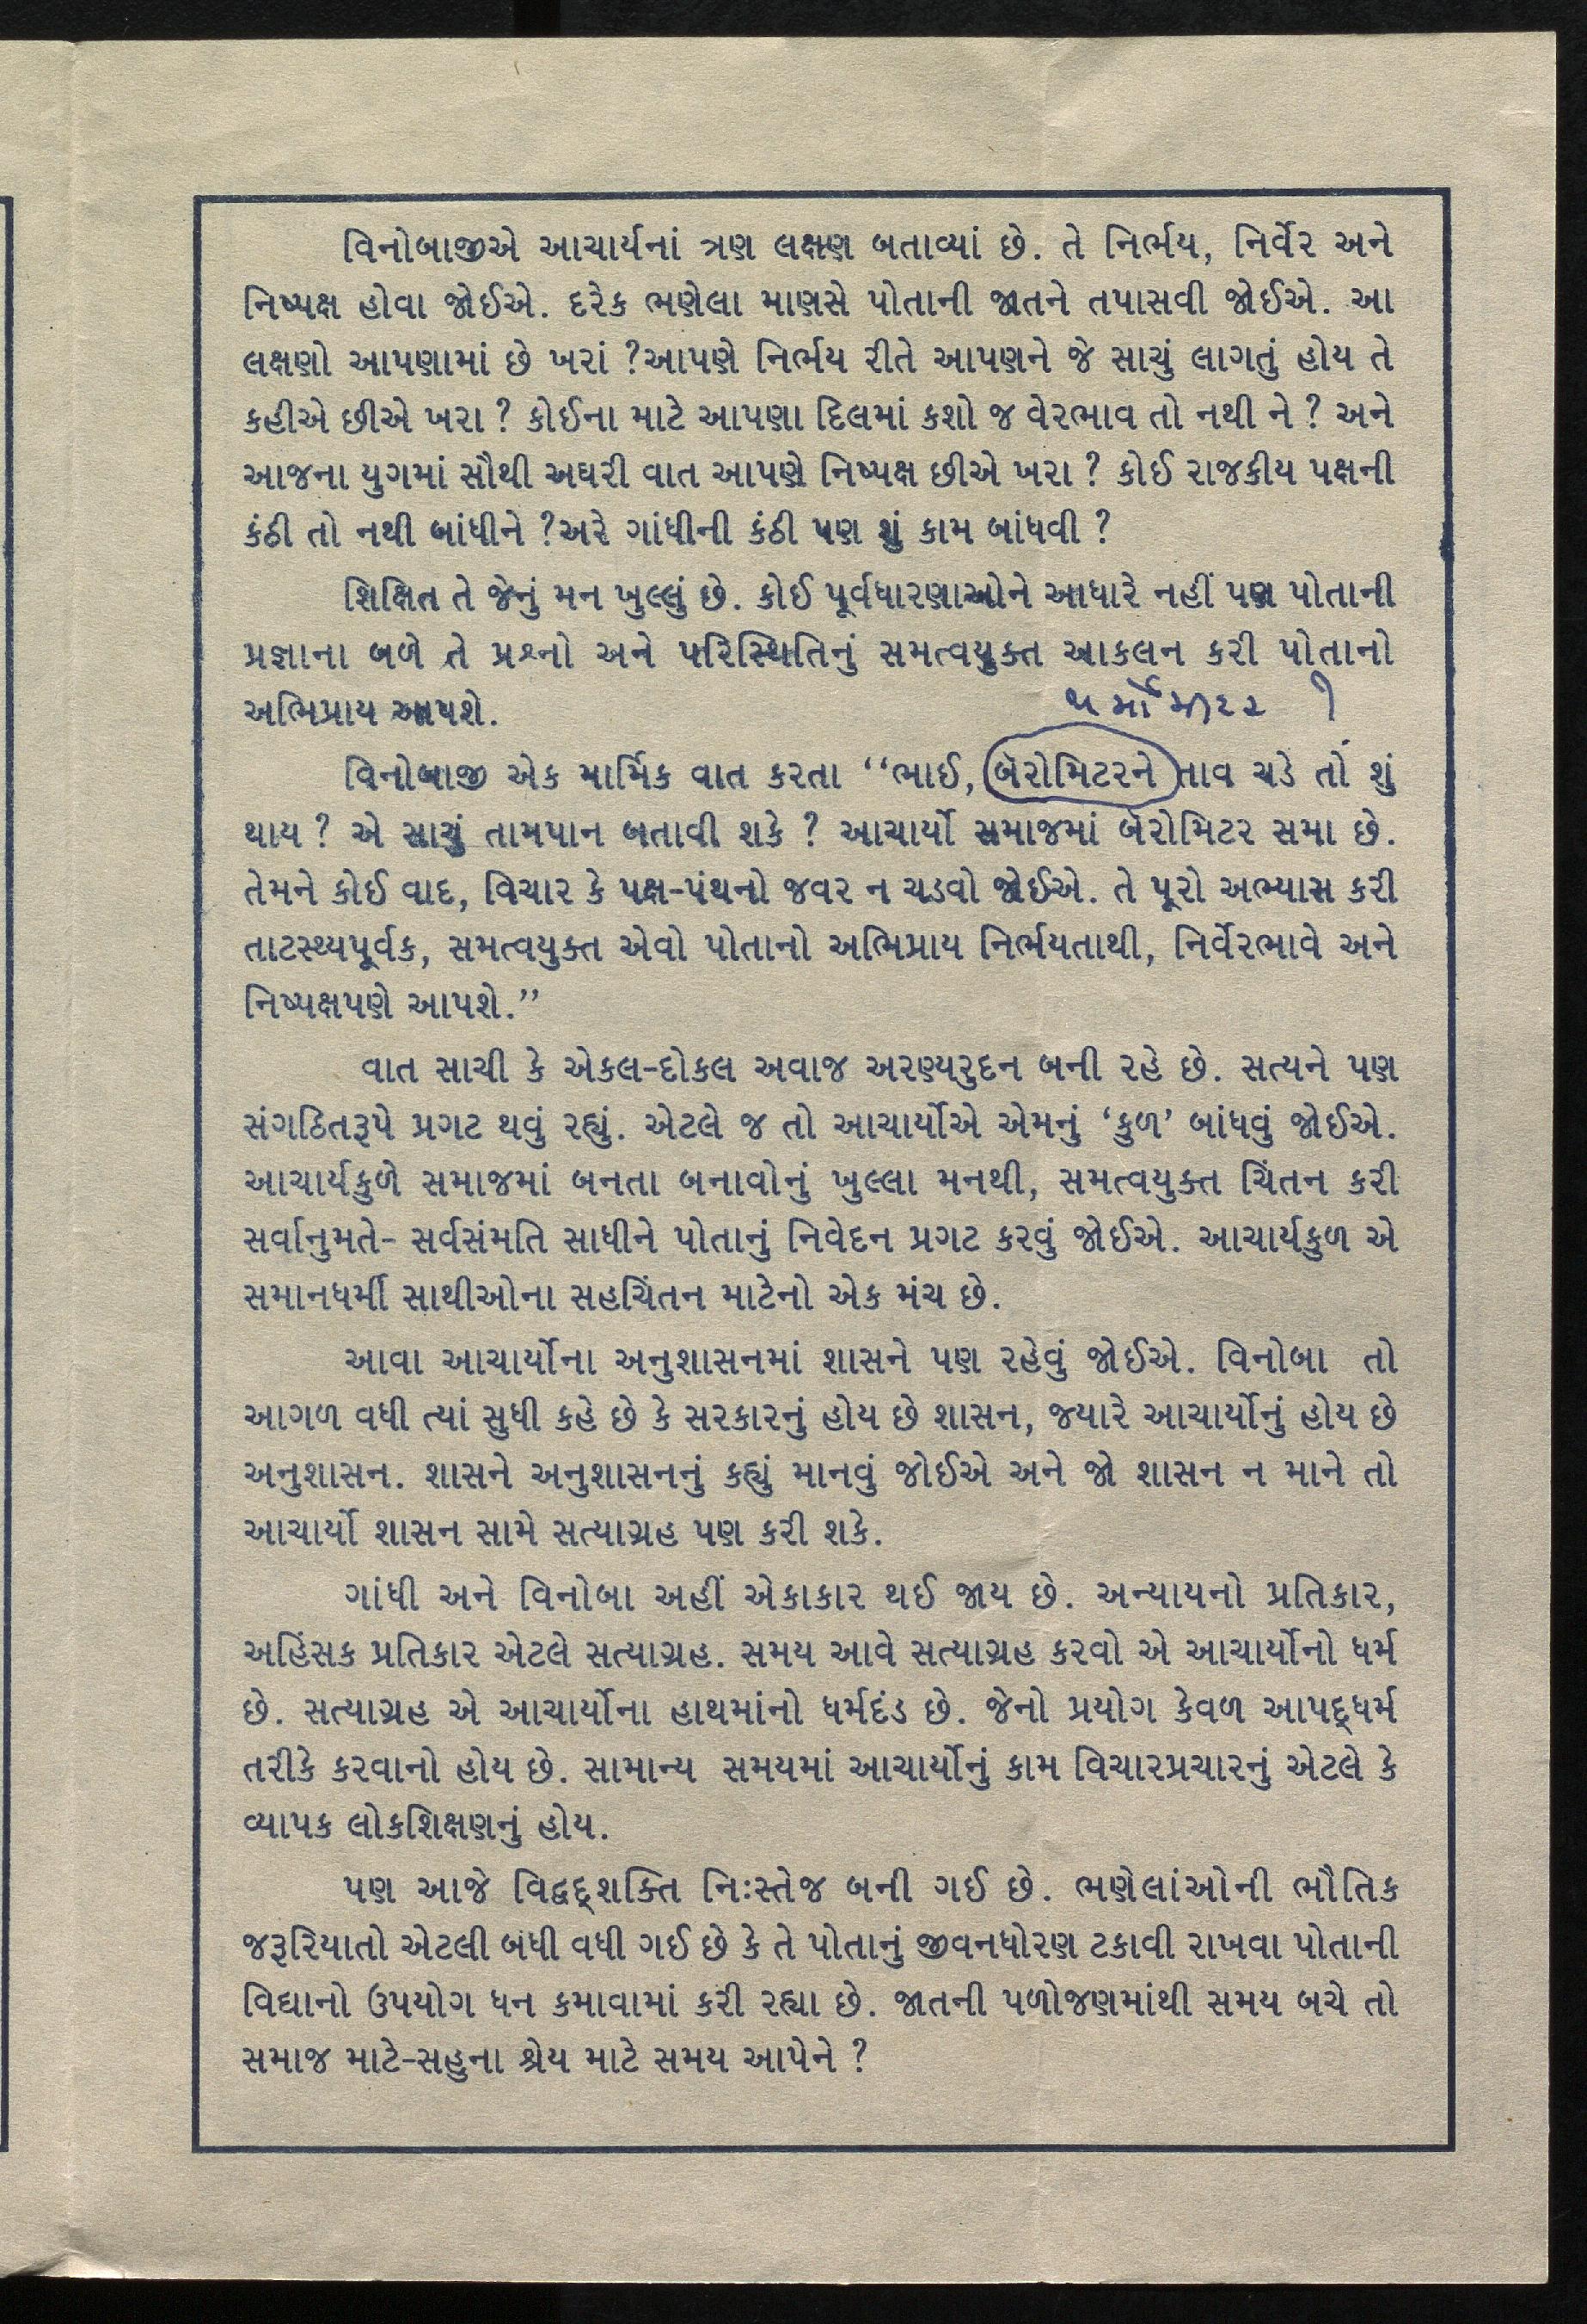 વિનોબાજીએ આચાર્યનાં ત્રણ લક્ષણ બતાવ્યાં છે. તે નિર્ભય, નિર્વેર અને
નિષ્પક્ષ હોવા જોઈએ. દરેક ભણેલા માણસે પોતાની જાતને તપાસવી જોઈએ. આ
લક્ષણો આપણામાં છે ખરાં ?આપણે નિર્ભય રીતે આપણને જે સાચું લાગતું હોય તે
કહીએ છીએ ખરા ? કોઈના માટે આપણા દિલમાં કશો જ વેરભાવ તો નથી ને ? અને
આજના યુગમાં સૌથી અઘરી વાત આપણે નિષ્પક્ષ છીએ ખરા ? કોઈ રાજકીય પક્ષની
કંઠી તો નથી બાંધીને ?અરે ગાંધીની કંઠી પણ શું કામ બાંધવી ?
શિક્ષિત તે જેનું મન ખુલ્લું છે. કોઈ પૂર્વધારણાઓને આધારે નહીં પણ પોતાની
પ્રજ્ઞાના બળે તે પ્રશ્નો અને પરિસ્થિતિનું સમત્વયુક્ત આકલન કરી પોતાનો
અભિપ્રાય આપશે.
થર્મોમીટર ?
વિનોબાજી એક માર્મિક વાત કરતા “ભાઈ, બૅરોમિટરને તાવ ચડે તો શું
થાય ? એ સાચું તામપાન બતાવી શકે ? આચાર્યો સમાજમાં બૅરોમિટર સમા છે.
તેમને કોઈ વાદ, વિચાર કે પક્ષ-પંથનો જવર ન ચડવો જોઈએ. તે પૂરો અભ્યાસ કરી
તાટસ્થ્યપૂર્વક, સમત્વયુક્ત એવો પોતાનો અભિપ્રાય નિર્ભયતાથી, નિર્વેરભાવે અને
નિષ્પક્ષપણે આપશે.”
વાત સાચી કે એકલ-દોકલ અવાજ અરણ્યરુદન બની રહે છે. સત્યને પણ
સંગઠિતરૂપે પ્રગટ થવું રહ્યું. એટલે જ તો આચાર્યોએ એમનું ‘કુળ’ બાંધવું જોઈએ.
આચાર્યકુળે સમાજમાં બનતા બનાવોનું ખુલ્લા મનથી, સમત્વયુક્ત ચિંતન કરી
સર્વાનુમતે- સર્વસંમતિ સાધીને પોતાનું નિવેદન પ્રગટ કરવું જોઈએ. આચાર્યકુળ એ
સમાનધર્મી સાથીઓના સહચિંતન માટેનો એક મંચ છે.
આવા આચાર્યોના અનુશાસનમાં શાસને પણ રહેવું જોઈએ. વિનોબા તો
આગળ વધી ત્યાં સુધી કહે છે કે સરકારનું હોય છે શાસન, જયારે આચાર્યોનું હોય છે
અનુશાસન. શાસને અનુશાસનનું કહ્યું માનવું જોઈએ અને જો શાસન ન માને તો
આચાર્યો શાસન સામે સત્યાગ્રહ પણ કરી શકે.
ગાંધી અને વિનોબા અહીં એકાકાર થઈ જાય છે. અન્યાયનો પ્રતિકાર,
અહિંસક પ્રતિકાર એટલે સત્યાગ્રહ. સમય આવે સત્યાગ્રહ કરવો એ આચાર્યોનો ધર્મ
છે. સત્યાગ્રહ એ આચાર્યોના હાથમાંનો ધર્મદંડ છે. જેનો પ્રયોગ કેવળ આપદ્ધર્મ
તરીકે કરવાનો હોય છે. સામાન્ય સમયમાં આચાર્યોનું કામ વિચારપ્રચારનું એટલે કે
વ્યાપક લોકશિક્ષણનું હોય.
પણ આજે વિદ્વદ્‌શક્તિ નિઃસ્તેજ બની ગઈ છે. ભણેલાંઓની ભૌતિક
જરૂરિયાતો એટલી બધી વધી ગઈ છે કે તે પોતાનું જીવનધોરણ ટકાવી રાખવા પોતાની
વિદ્યાનો ઉપયોગ ધન કમાવામાં કરી રહ્યા છે. જાતની પળોજણમાંથી સમય બચે તો
સમાજ માટે-સહુના શ્રેય માટે સમય આપેને ?